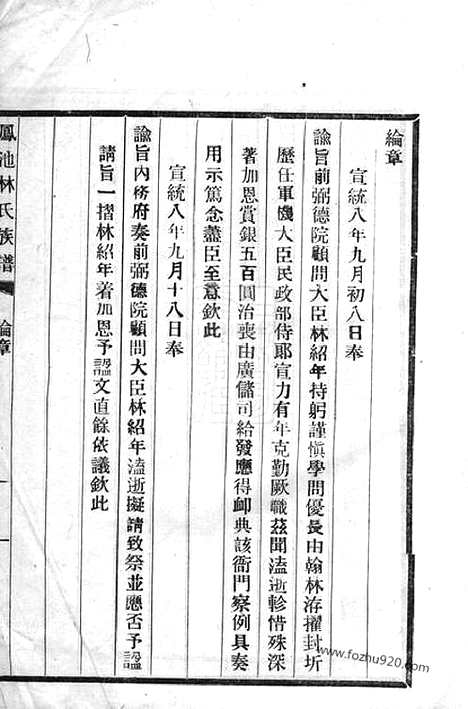 綸章
宣統八年九月初八日奉
諭旨前弼德院顧問大臣林紹年持躬謹愼學問優長由翰林洊擢封圻
歷任軍機大臣民政部侍郞宣力有年克勤厥職茲聞溘逝軫惜殊深
著加恩賞銀五百圓治喪由廣儲司給發應得卹典該衙門察例具奏
用示篤念藎臣至意欽此
宣統八年九月十八日奉
諭旨內務府奏前弼德院顧問大臣林紹年溘逝擬請致祭並應否予諡
請旨一摺林紹年著加恩予諡文直餘依議欽此
鳳池林氏族譜
綸章
www.fozhu920.com